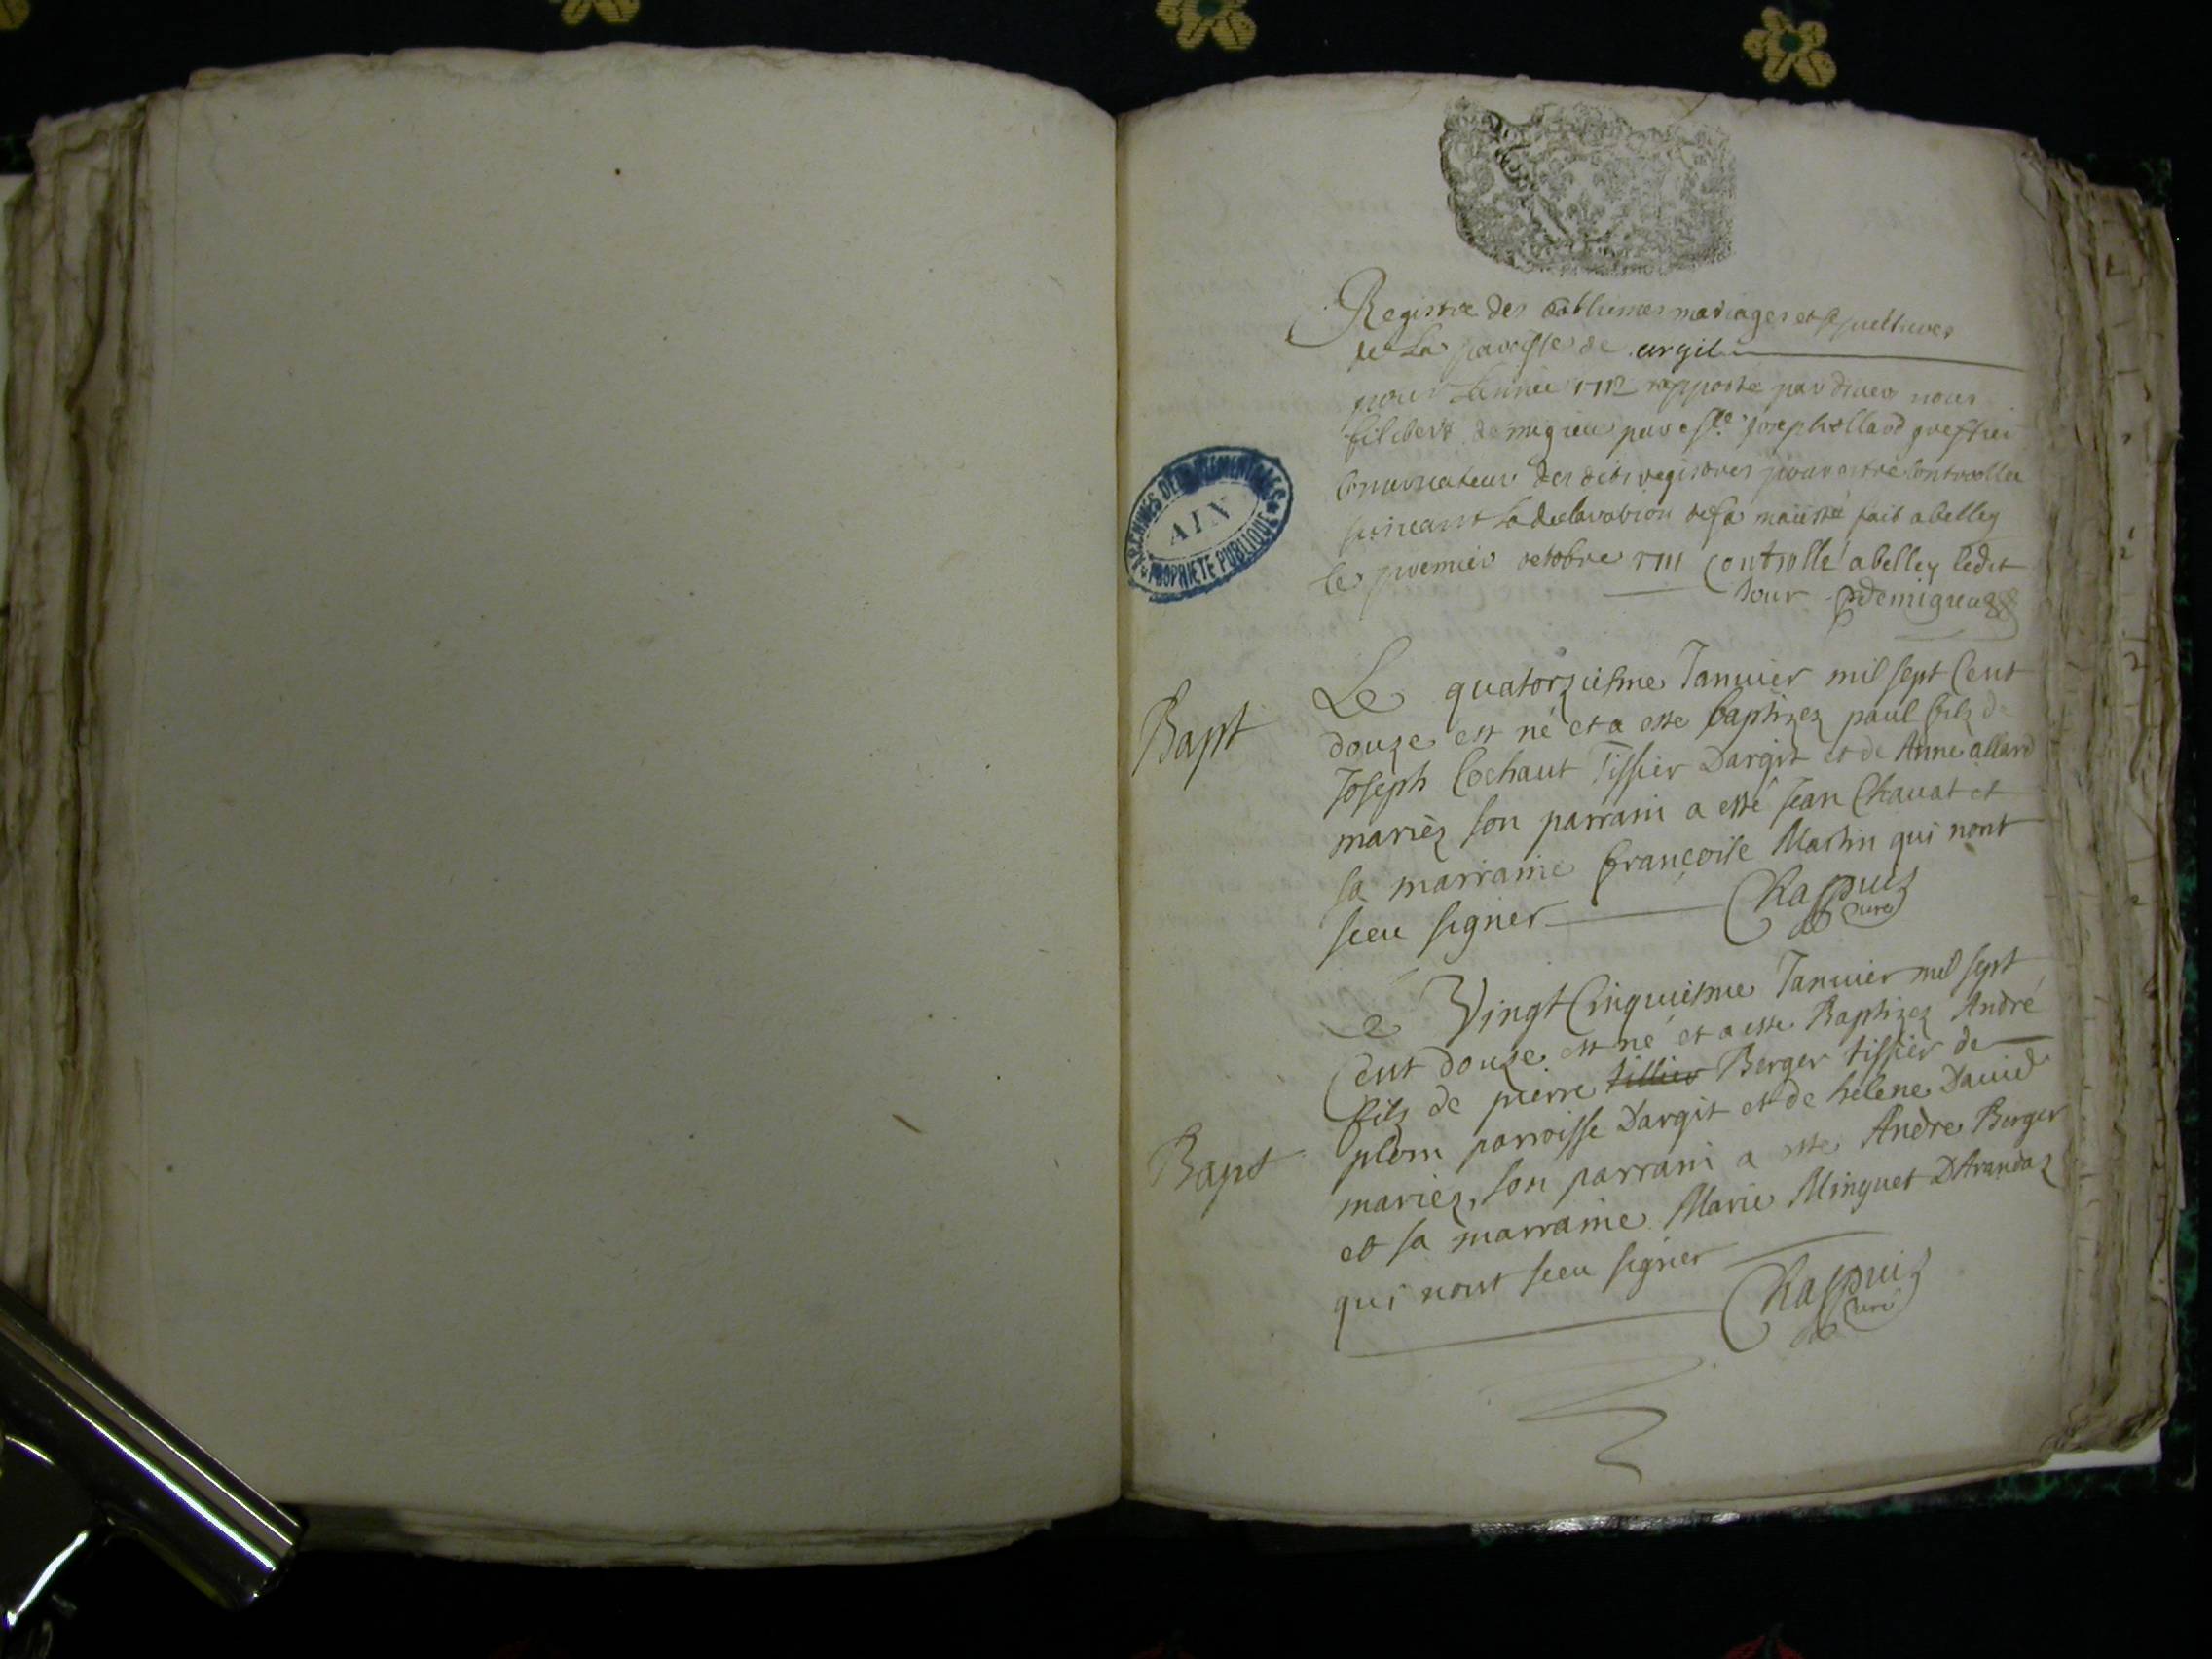 Registre des babtesmes mariages et sepultures
de La paroisse de argit
pour Lannée 1712 rapporté par devant nous
filibert demigieu par Joseph allard greffier
Conservateur des dits registres pour estre controollés
suivant La declaration de sa maiesté fait a belley
le premier octobre 1711 Controllé a belley ledit
Jour demigieu
ARCHIVES DEPARTEMENTALES
AIN
PROPRIETE PUBLIQUE
Bapt
Le quatorziesme Januier mil sept Cent
douze est né et a esté baptizez paul filz de
Joseph Cochaut Tissier Dargit et de Anne allard
mariéz son parrain a esté Jean Chauat et
sa marraine françoise Martin qui nont
sceu signer Chaspuis
Curé
Bapt
Le Vingt Cinquiesme Januier mil sept
Cent douze est né et a esté Baptizez André
filz de pierre tissier Berger tissier de
plom parroisse Dargit et de helene Dauid
mariez, son parrain a esté Andre Berger
et sa marraine Marie Minguet DArandaz
qui nont sceu signer
Chaspuis
Curé